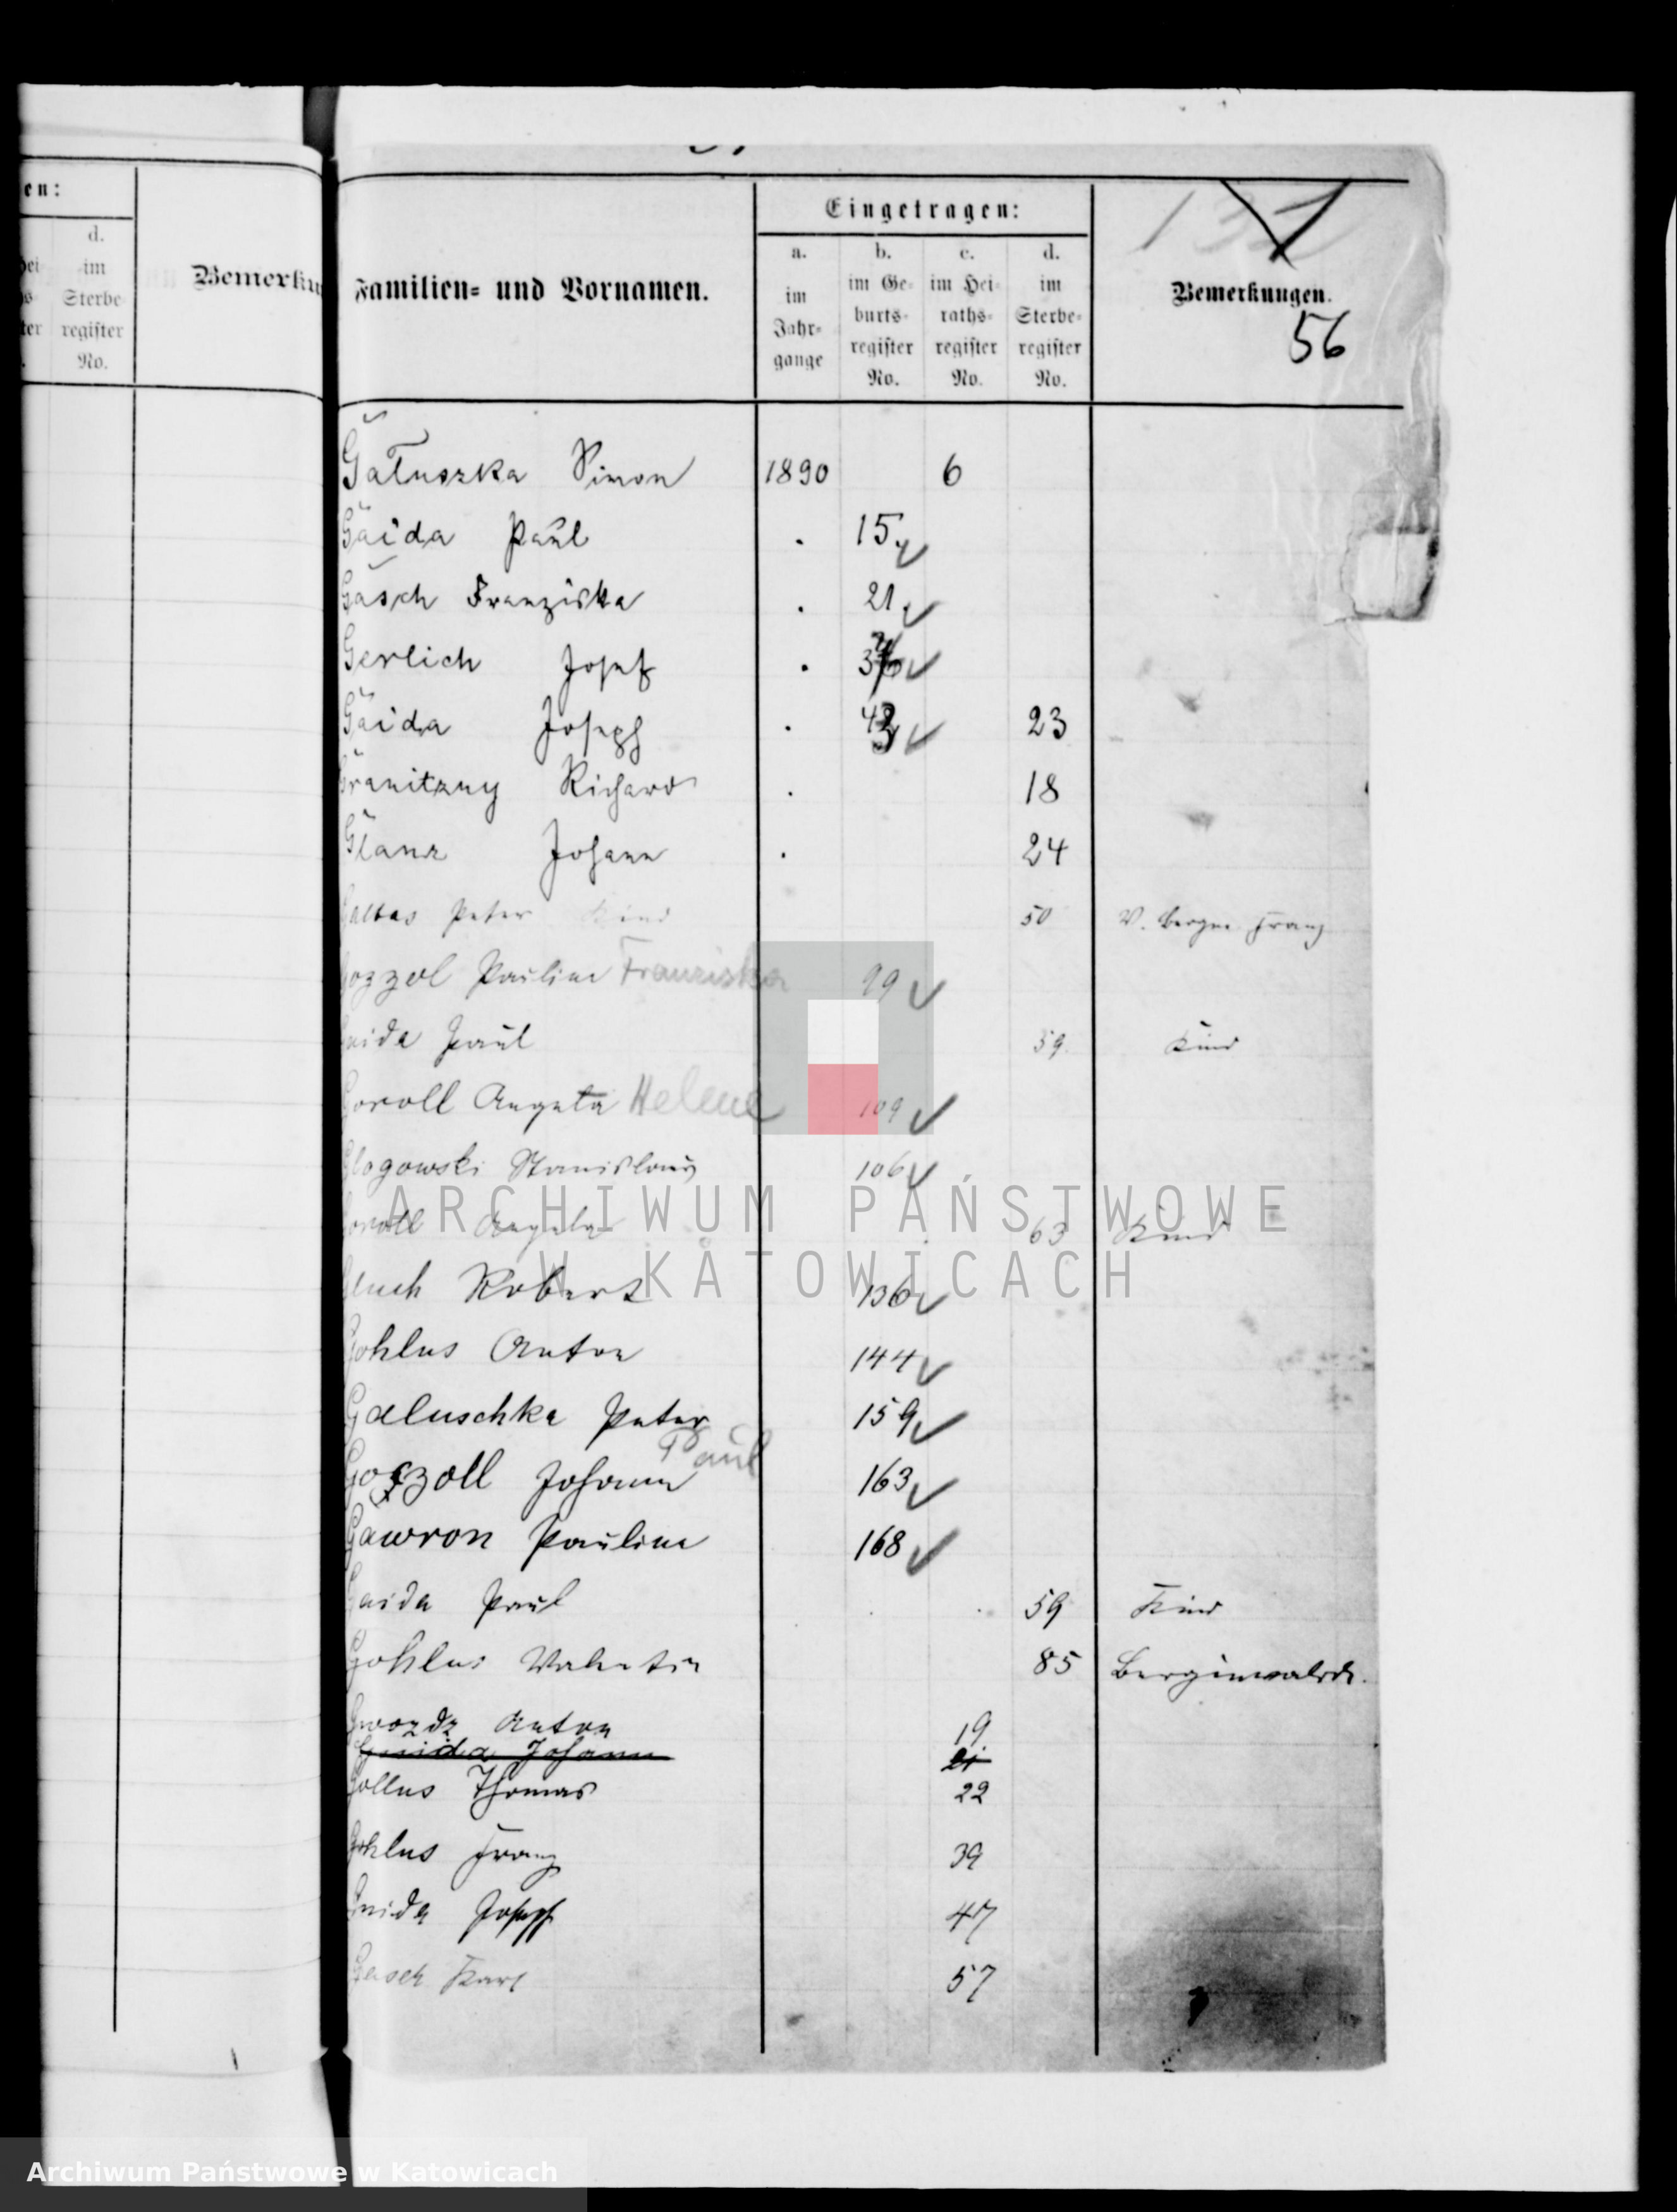 en:
d.
im
Sterbe
register
No.
Bemerku
Familien= und Vornamen.
Eingetragen:
a.
im
Jahr=
gange
b.
im Ge=
burts=
register
No.
c.
im Hei=
raths=
register
No.
d.
im
Sterbe=
register
No.
Bemerkungen.
56
Gałuszka Simon 1890 6
Gaida Paul . 15
Gasch Franziska . 21
Gerlich Josef .
Gaida Joseph . 23
Granitzny Richard . 18
Glanz Johann . 24
Peter Kind 50 Franz
Gozzol Pauline Franziska 99
Gaida Paul 59. Kind
Goroll Agata Helene 109
Glogowski Stanislaus 106
Goroll 63 Kind
Robert 136
Gohlus Anton 144
Galuschka Peter 159
Paul
Goszoll Johann 163
Gawron Pauline 168
Gaida Paul 59 Kind
Gohlus Valentin 85 Berginvalide.
Gwozdz Anton 19.
Gaida Johann 21
Gollus Thomas 22
Gohlus Franz 39
Gaida Joseph 47
Gasch Karl 57
ARCHIWUM PAŃSTWOWE
W KATOWICACH
Archiwum Państwowe w Katowicach